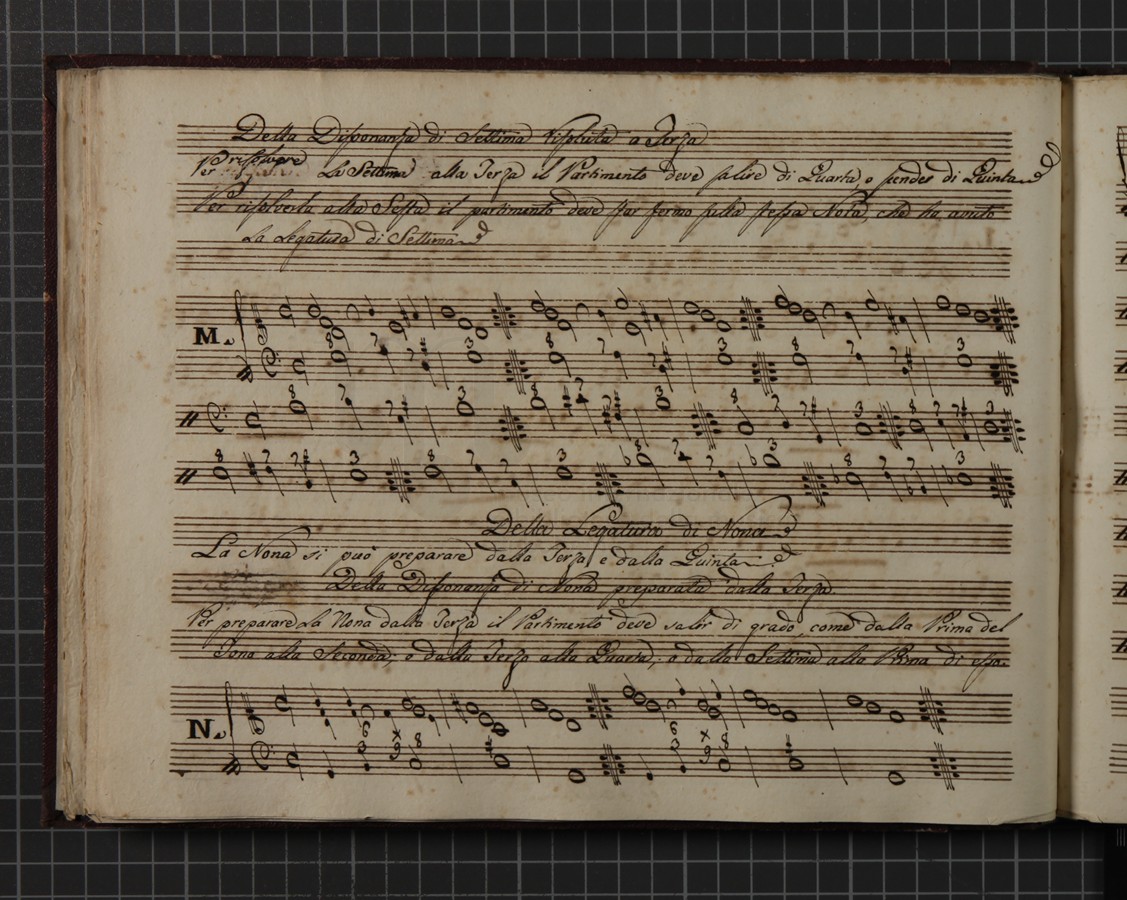 Della Dissonanza di Settima risoluta a Terza
Per risolvere La Settima alla Terza il Partimento deve salire di Quarta, o scender di Quinta
Per risolverla alla Sesta il partimento deve star fermo sulla stessa Nota, che ha avuto
La Legatura di Settima
M.
8 7 7 3 8 7 7 3 8 7 7 3
8 7 7 3 8 7 7 3 8 7 7 3 8 7 7 3
8 7 7 3 8 7 7 3 8 7 7 3 8 7 7 3
Della Legatura di Nona
La Nona si può preparare dalla Terza, e dalla Quinta
Della Dissonanza di Nona preparata dalla Terza.
Per preparare La Nona dalla Terza il Partimento deve salir di grado, come dalla Prima del
Tono alla Seconda; o dalla Terza alla Quarta; o dalla Settima alla Prima di esso.
N.
6 3 9 8 6 3 9 8